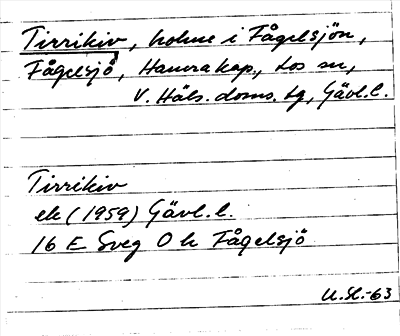 Tirrikiv, holme i Fågelsjön,
Fågelsjö, Hamra kap., Los sn,
V. Häls. doms. tg, Gävl. l.
Tirrikiv
ek (1959) Gävl. l.
16 E Sveg O h Fågelsjö
U.Sl.-63